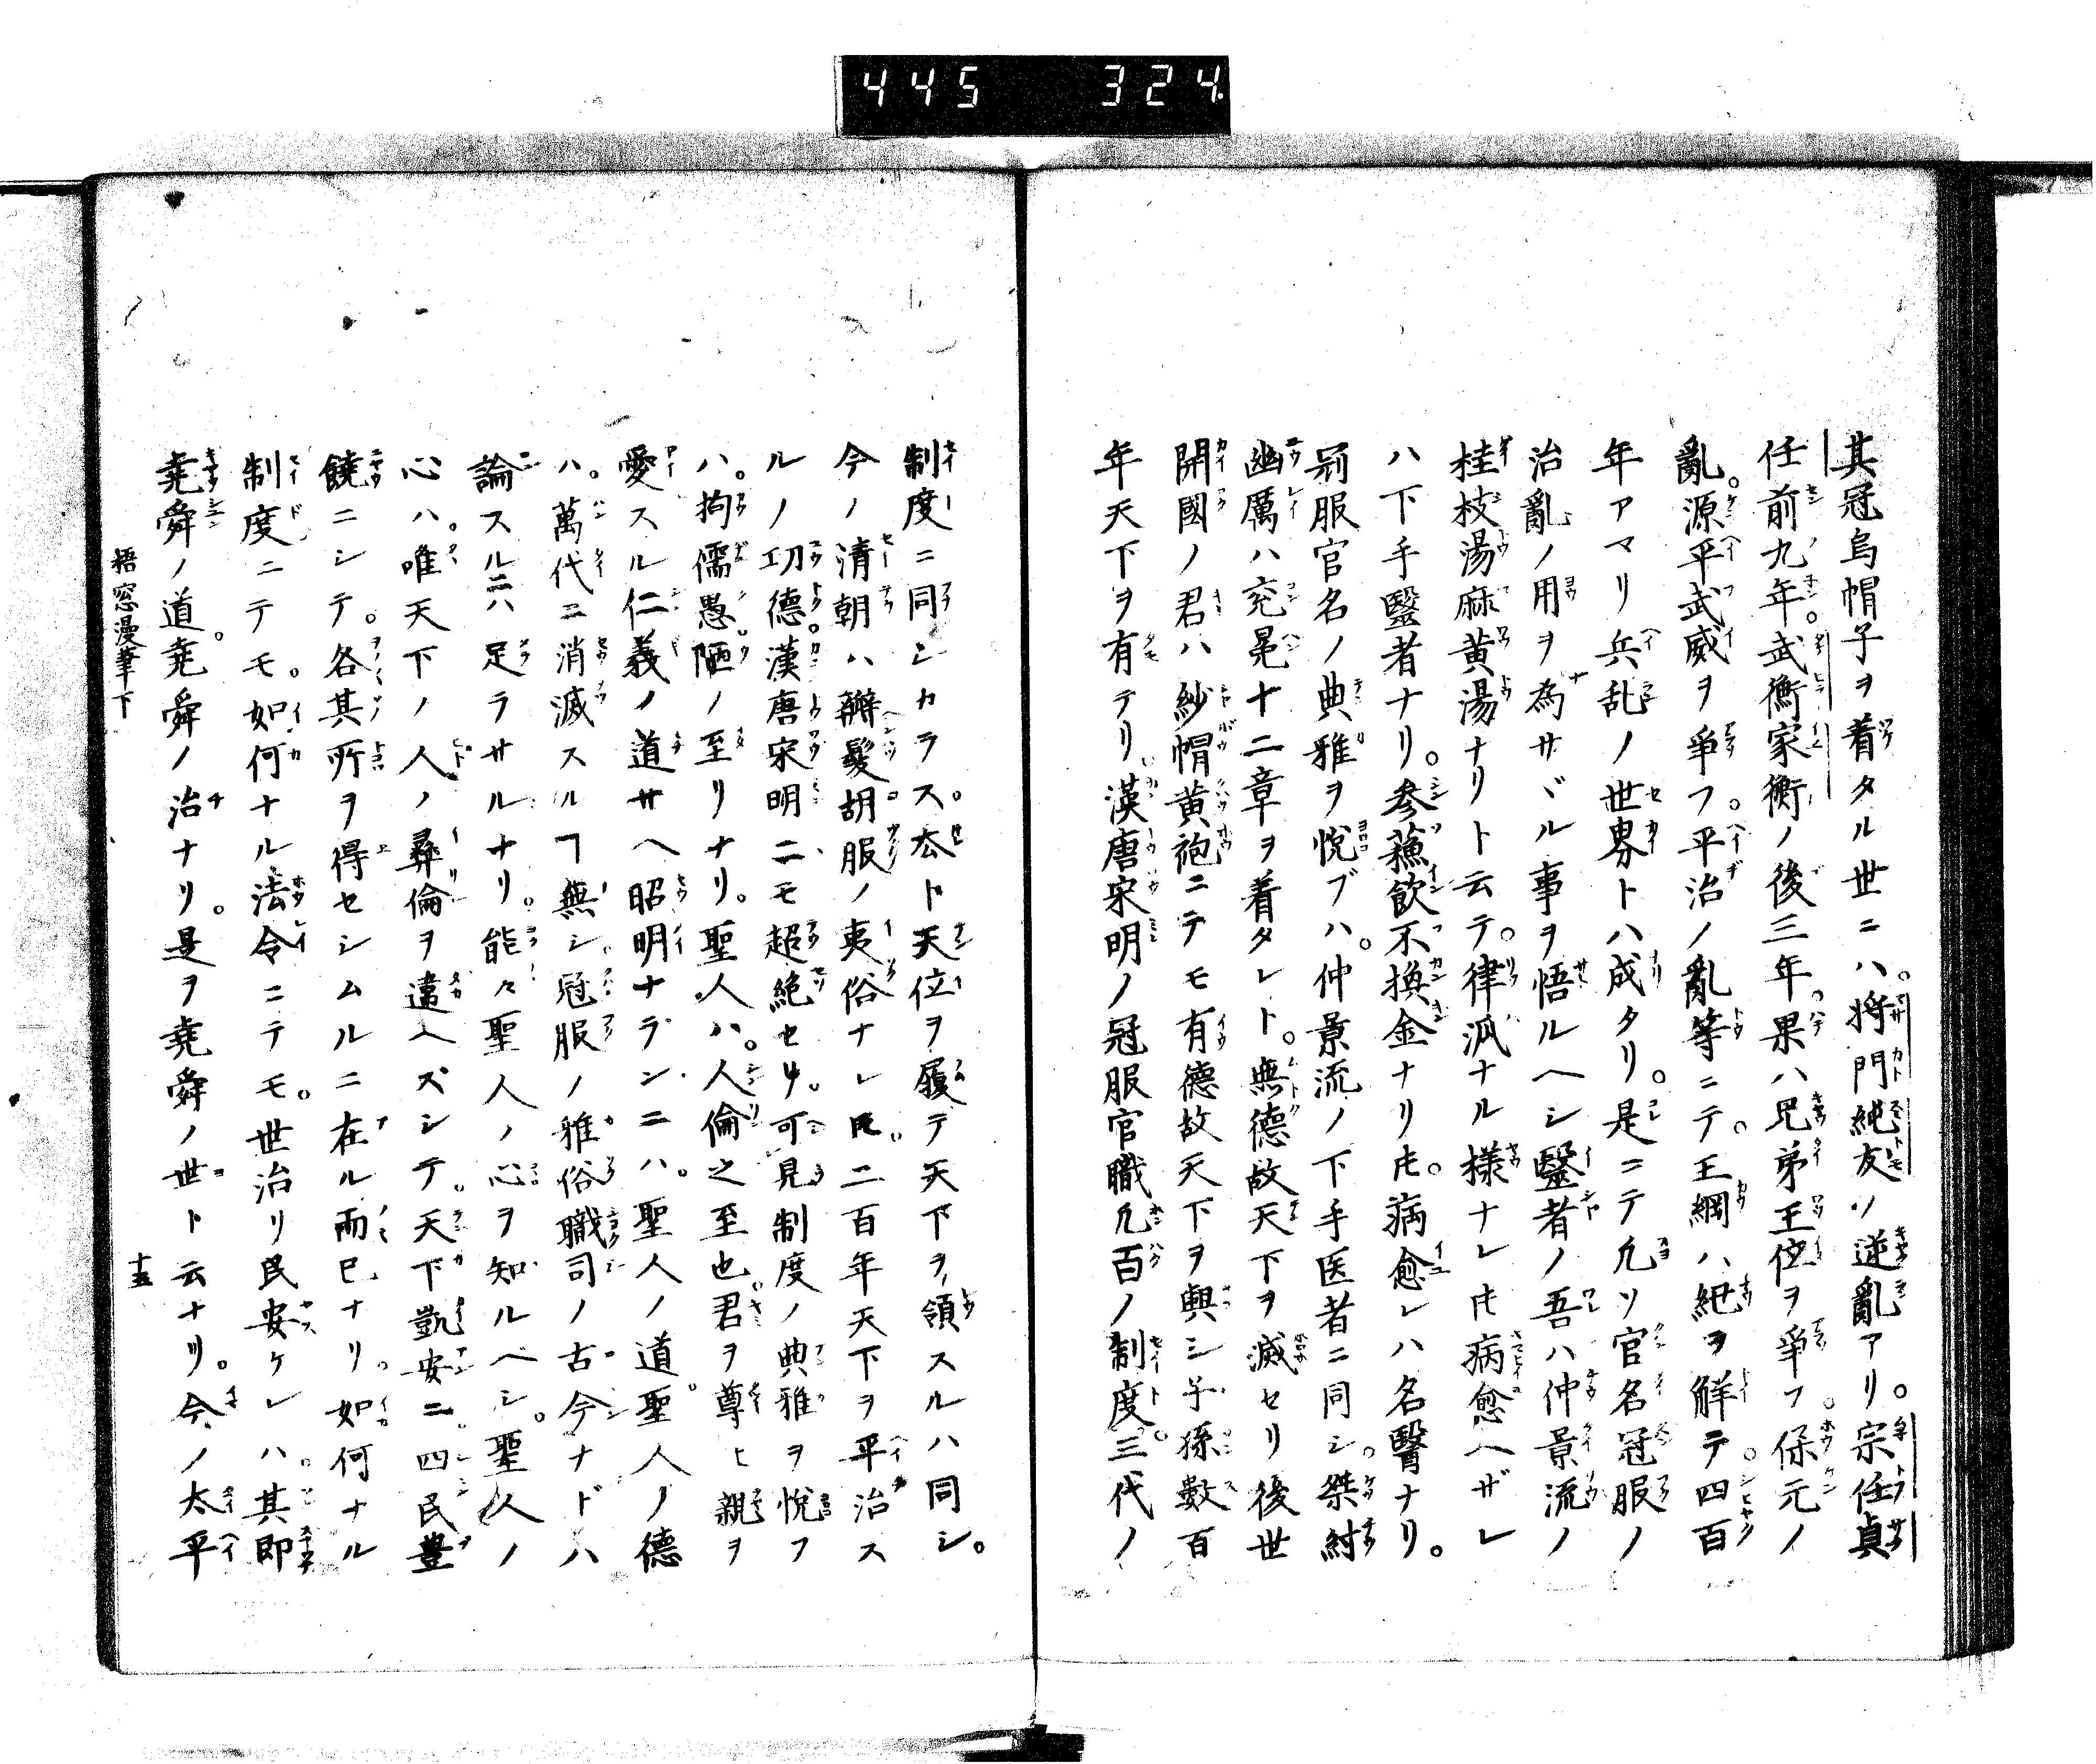 445 324
其冠烏帽子ヲ着タル世ニハ。将門純友ノ逆亂アリ。宗任貞
任前九年。武衡家衡ノ後三年。果ハ兄弟王位ヲ爭フ。保元ノ
亂。源平武威ヲ爭フ。平治ノ亂等ニテ。王綱ハ紐ヲ觧テ。四百
年アマリ兵乱ノ世界トハ成タリ。是ニテ凢ソ官名冠服ノ
治亂ノ用ヲ為サヾル事ヲ悟ルヘシ毉者ノ吾ハ仲景流ノ
桂枝湯麻黄湯ナリト云テ。律派ナル様ナレ𪜈病愈ヘザレ
ハ下手毉者ナリ。参蘓飲不換金ナリ𪜈。病愈レハ名醫ナリ。
冠服官名ノ典雅ヲ悅ブハ。仲景流ノ下手医者ニ同シ。桀紂
幽厲ハ兖冕十二章ヲ着タレト。無德故天下ヲ滅セリ後世
開國ノ君ハ紗帽黄袍ニテモ有德故天下ヲ興シ子孫數百
年天下ヲ有テリ。漢唐宋明ノ冠服官職凢百ノ制度。三代ノ
制度ニ同シカラス。厺ト天位ヲ履テ天下ヲ領スルハ同シ。
今ノ清朝ハ辮髮胡服ノ夷俗ナレ𪜈。二百年天下ヲ平治ス
ルノ功德。漢唐宋明ニモ超絶セリ。可見制度ノ典雅ヲ悅フ
ハ。拘儒愚陋ノ至リナリ。聖人ハ。人倫之至也。君ヲ尊ヒ親ヲ
愛スル仁義ノ道サヘ昭明ナランニハ。聖人ノ道聖人ノ德
ハ。萬代ニ消滅スルヿ無シ。冠服ノ雅俗職司ノ古今ナドハ
論スルニハ足ラサルナリ。能々聖人ノ心ヲ知ルベシ。聖人ノ
心ハ。唯天下ノ人ノ彛倫ヲ違ヘズシテ。天下凱安ニ。四民豊
饒ニシテ。各其所ヲ得セシムルニ在ル而已ナリ。如何ナル
制度ニテモ。如何ナル法令ニテモ。世治リ民安ケレハ。其即
堯舜ノ道。堯舜ノ治ナリ。是ヲ堯舜ノ世ト云ナリ。今ノ太平
梧窓漫筆下 十五